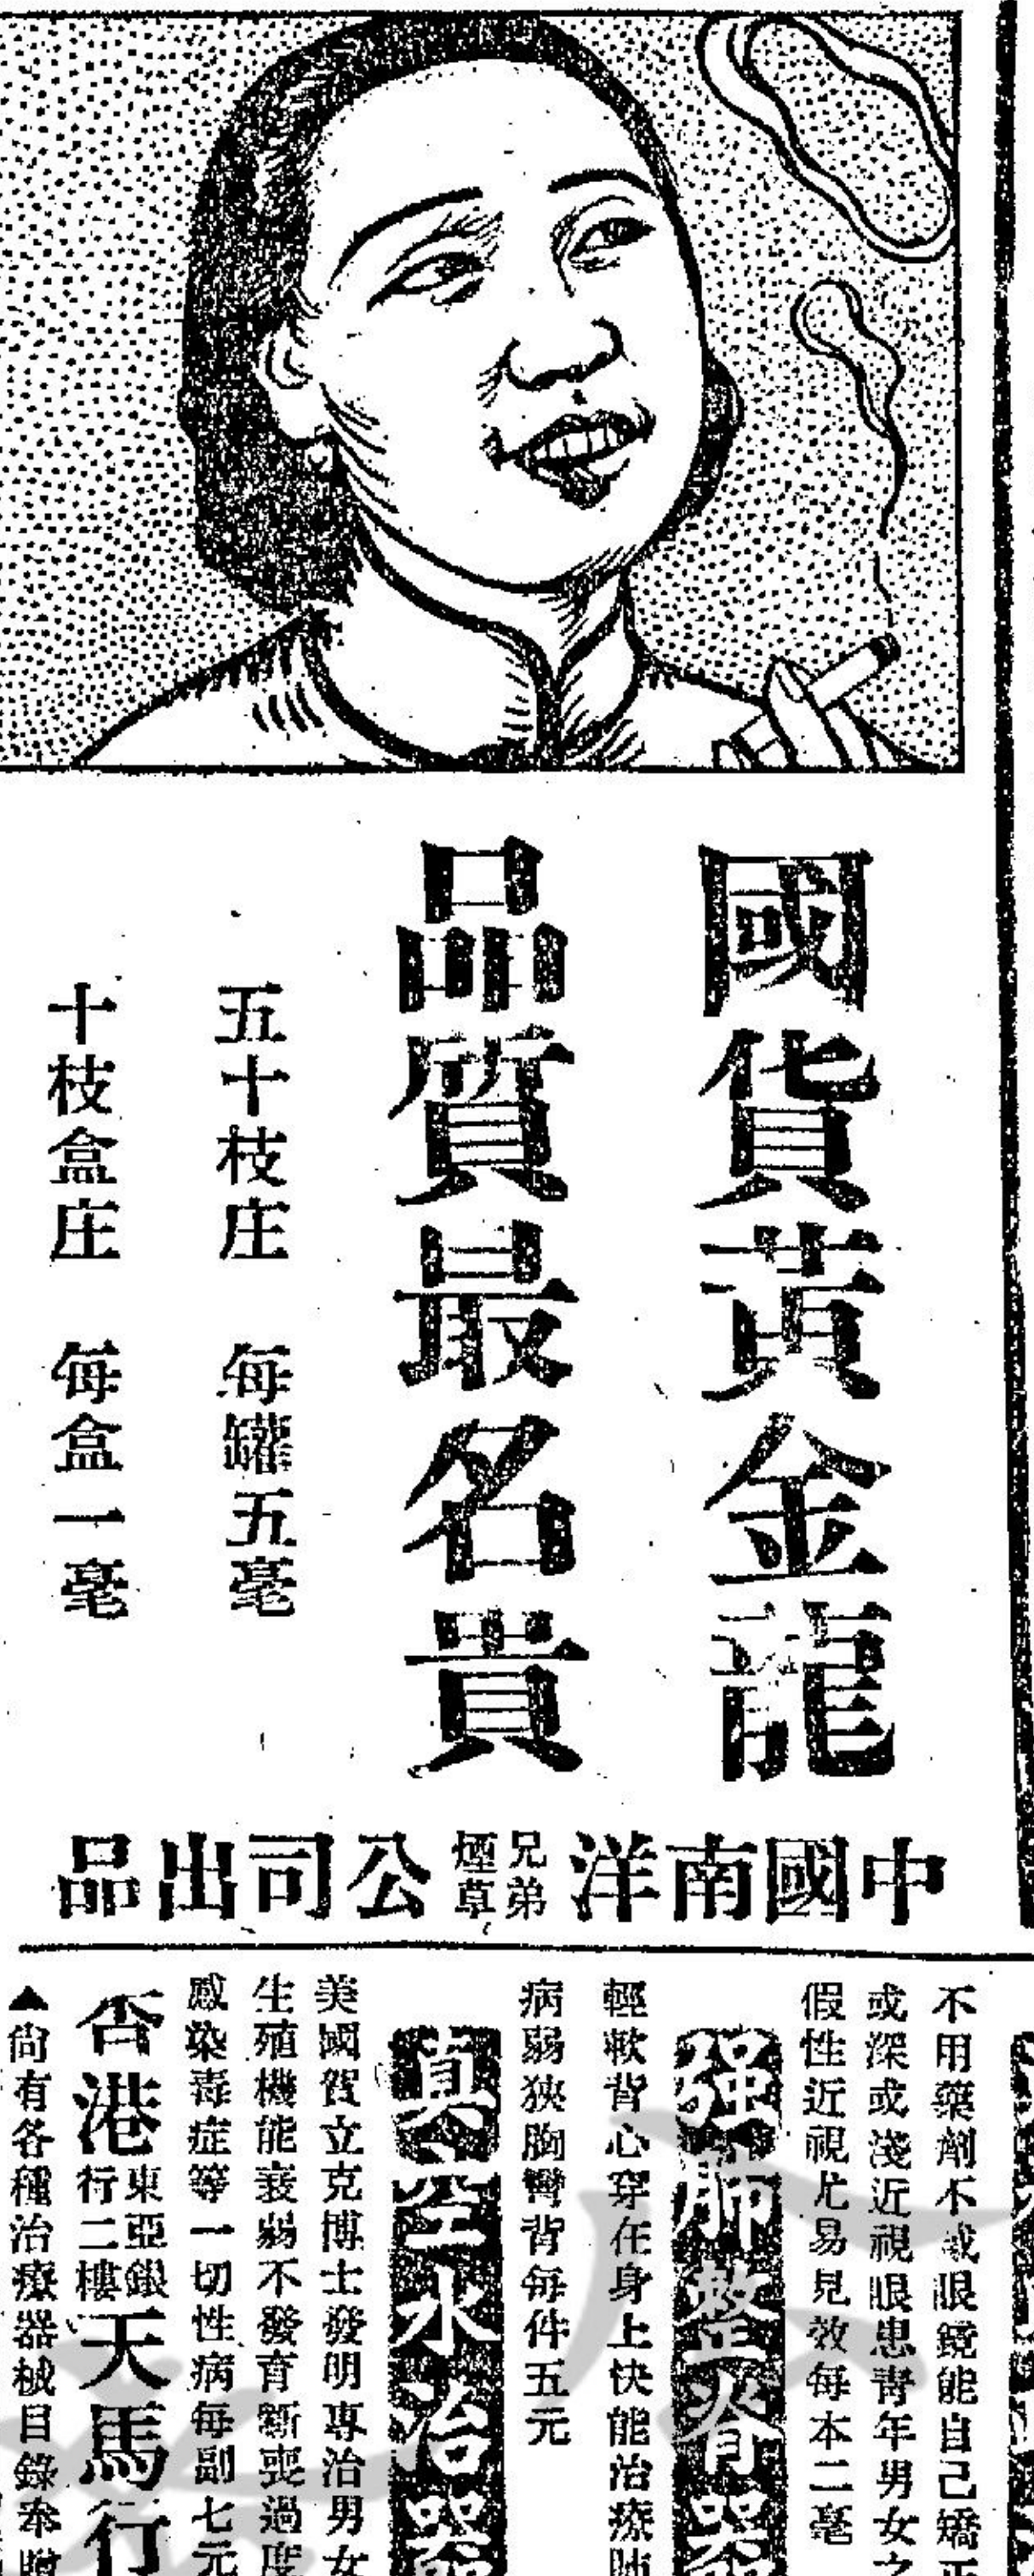 國貨黃金龍
品質最名貴
五十枝庄 每罐五毫
十枝盒庄 每盒一毫
中國南洋兄弟煙草公司出品
不用藥劑不戒眼鏡能自己矯正
或深或淺近視眼患青年男女之
假性近視尤易見效每本二毫
强肺整脊器
輕軟背心穿在身上快能治療肺
病弱狹胸彎背每件五元
真空水治器
美國賀立克博士發明專治男女
生殖機能衰弱不發育斲喪過度
感染毒症等一切性病每副七元
香港東亞銀行二樓天馬行
▲尙有各種治療器械目錄奉贈